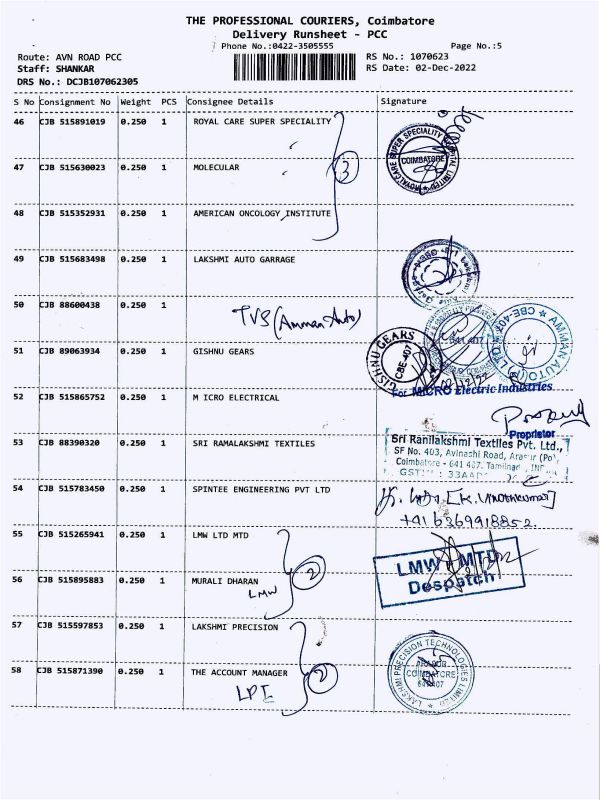 THE PROFESSIONAL COURIERS, Coimbatore
Delivery Runsheet - PCC
Phone No.:0422-3505555 Page No.:5
Route: AVN ROAD PCC RS No.: 1070623
Staff: SHANKAR RS Date: 02-Dec-2022
DRS No.: DCJB107062305
S No Consignment No Weight PCS Consignee Details Signature
46 CJB 515891019 0.250 1 ROYAL CARE SUPER SPECIALITY
COIMBATORE
47 CJB 515630023 0.250 1 MOLECULAR
3
48 CJB 515352931 0.250 1 AMERICAN ONCOLOGY INSTITUTE
49 CJB 515683498 0.250 1 LAKSHMI AUTO GARRAGE
50 CJB 88600438 0.250 1
TVS (Amman Auto)
51 CJB 89063934 0.250 1 GISHNU GEARS
GISHNU GEARS
CBE-407
641 407
AMMAN AUTO
CBE-407
52 CJB 515865752 0.250 1 M ICRO ELECTRICAL
For MICRO Electric Industries
Proprietor
53 CJB 88390320 0.250 1 SRI RAMALAKSHMI TEXTILES
Sri Ranilakshmi Textiles Pvt. Ltd.,
SF No. 403, Avinashi Road, Arasur (Po),
Coimbatore - 641 407. Tamilnad
54 CJB 515783450 0.250 1 SPINTEE ENGINEERING PVT LTD
+91 6369918852.
55 CJB 515265941 0.250 1 LMW LTD MTD
56 CJB 515895883 0.250 1 MURALI DHARAN
LMW
2
LMW MTD
Despatch
57 CJB 515597853 0.250 1 LAKSHMI PRECISION
58 CJB 515871390 0.250 1 THE ACCOUNT MANAGER
LPI
2
LAKSHMI PRECISION TECHNOLOGIES LIMITED
COIMBATORE
641 407